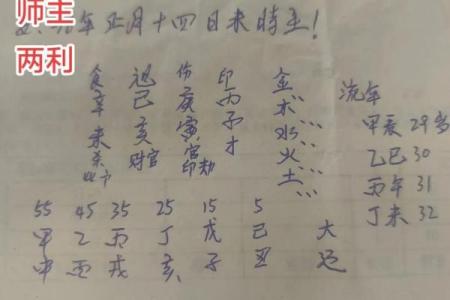 师主
两利
96年正月十四日未时生！
食 伤 印
辛 己 庚 丙
未 亥 寅 子
杀 财官 官印劫 才
金
木
水
火
土
流年
甲辰 29岁
乙巳 30
丙午 31
丁未 32
55 45 35 25 15 5
甲 乙 丙 丁 戊 己 大
申 酉 戌 亥 子 丑 运